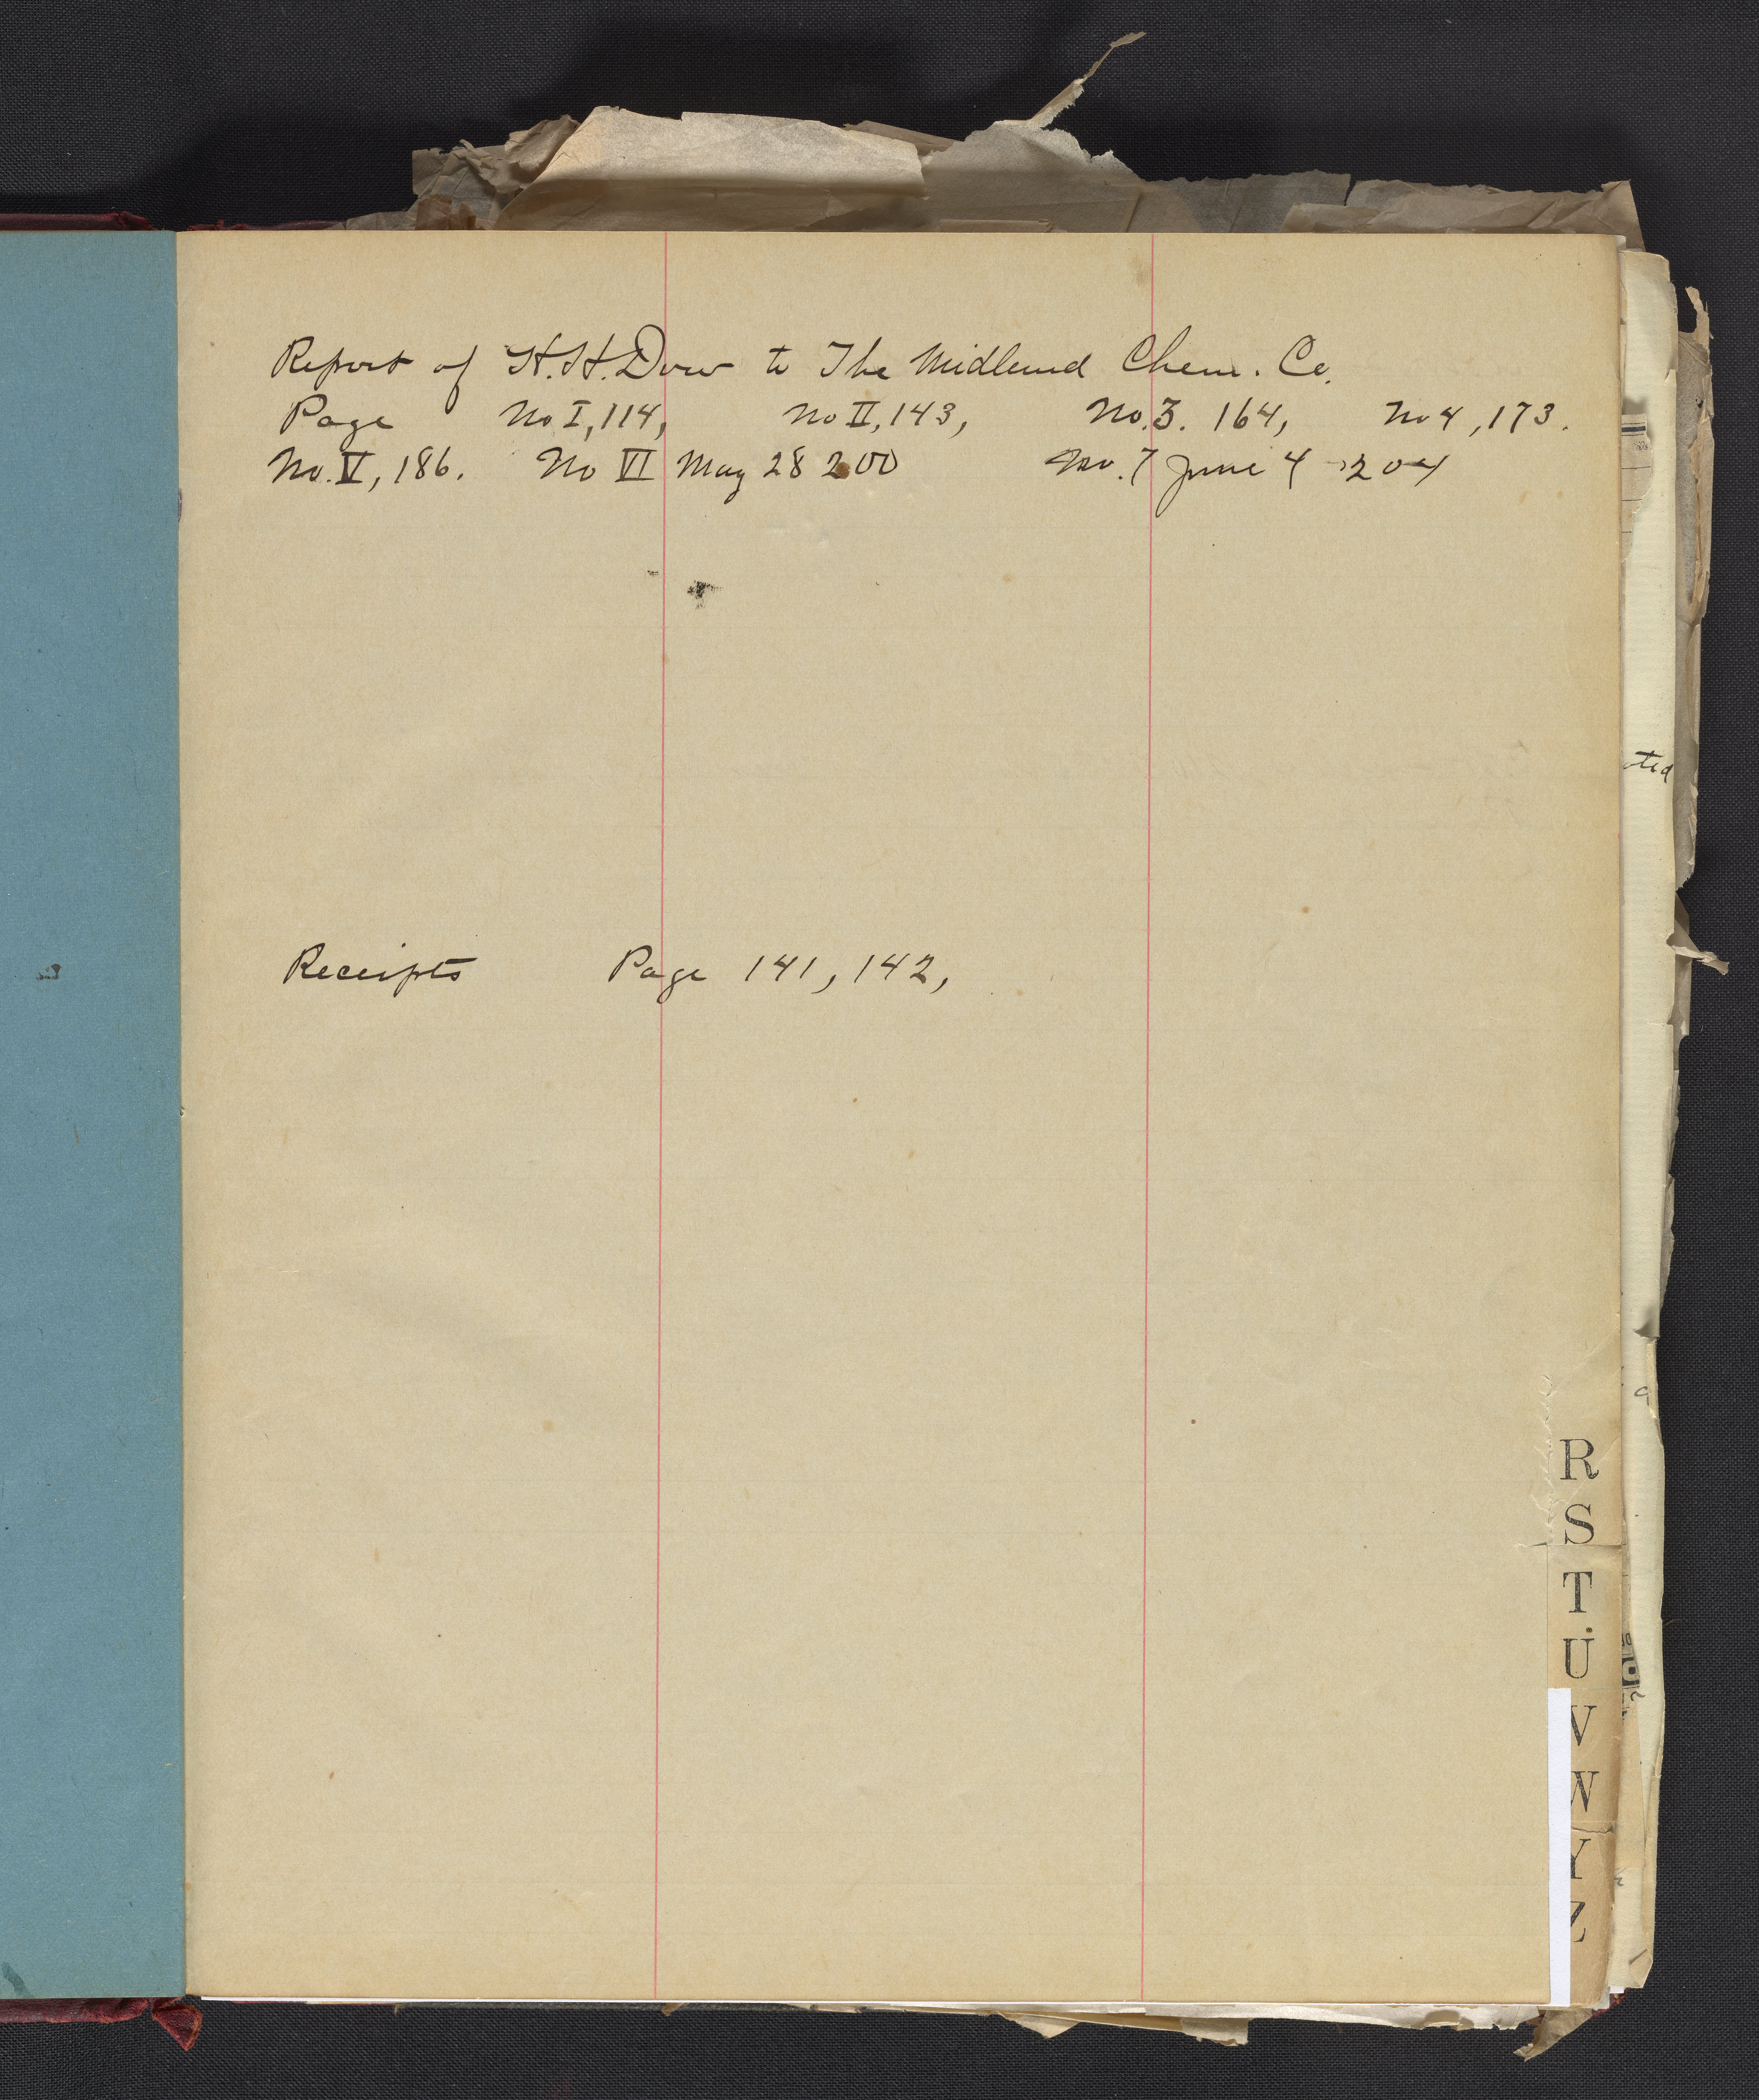 Report of H.H. Dow to The Midland Chem. Co.
Page No I, 114, No II, 143, No. 3. 164, No 4, 173.
No. V, 186. No VI May 28 200 No. 7 June 4 204
Receipts Page 141, 142,
R
S
T
U
V
W
Y
Z